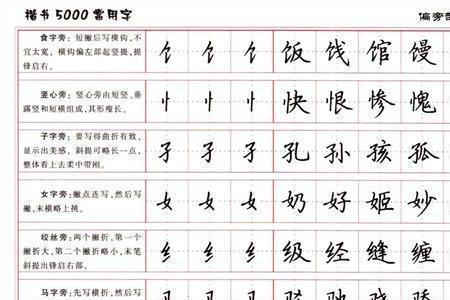 楷书5000常用字
偏旁部
食字旁：短撇后写横钩，不
宜太宽，横钩偏左部起竖提，提
锋启右。
饣 饣 饣 饭 饯 馆 馒
竖心旁：竖心旁由短竖、垂
露竖和短横组成，其形瘦长。
忄 忄 忄 快 恨 惨 愧
子字旁：要写得曲折有致，
显示出美感，斜提可略长一点，
整体看上去柔中带刚。
孑 孑 孑 孔 孙 孩 孤
女字旁：撇点连写，然后写
撇，末横略上挑。
女 女 女 奶 好 姬 妙
绞丝旁：两个撇折，第一个
撇折大，第二个撇折略小，末笔
斜提出锋启右部。
纟 纟 纟 级 经 缝 缠
马字旁：先写横折，然后写